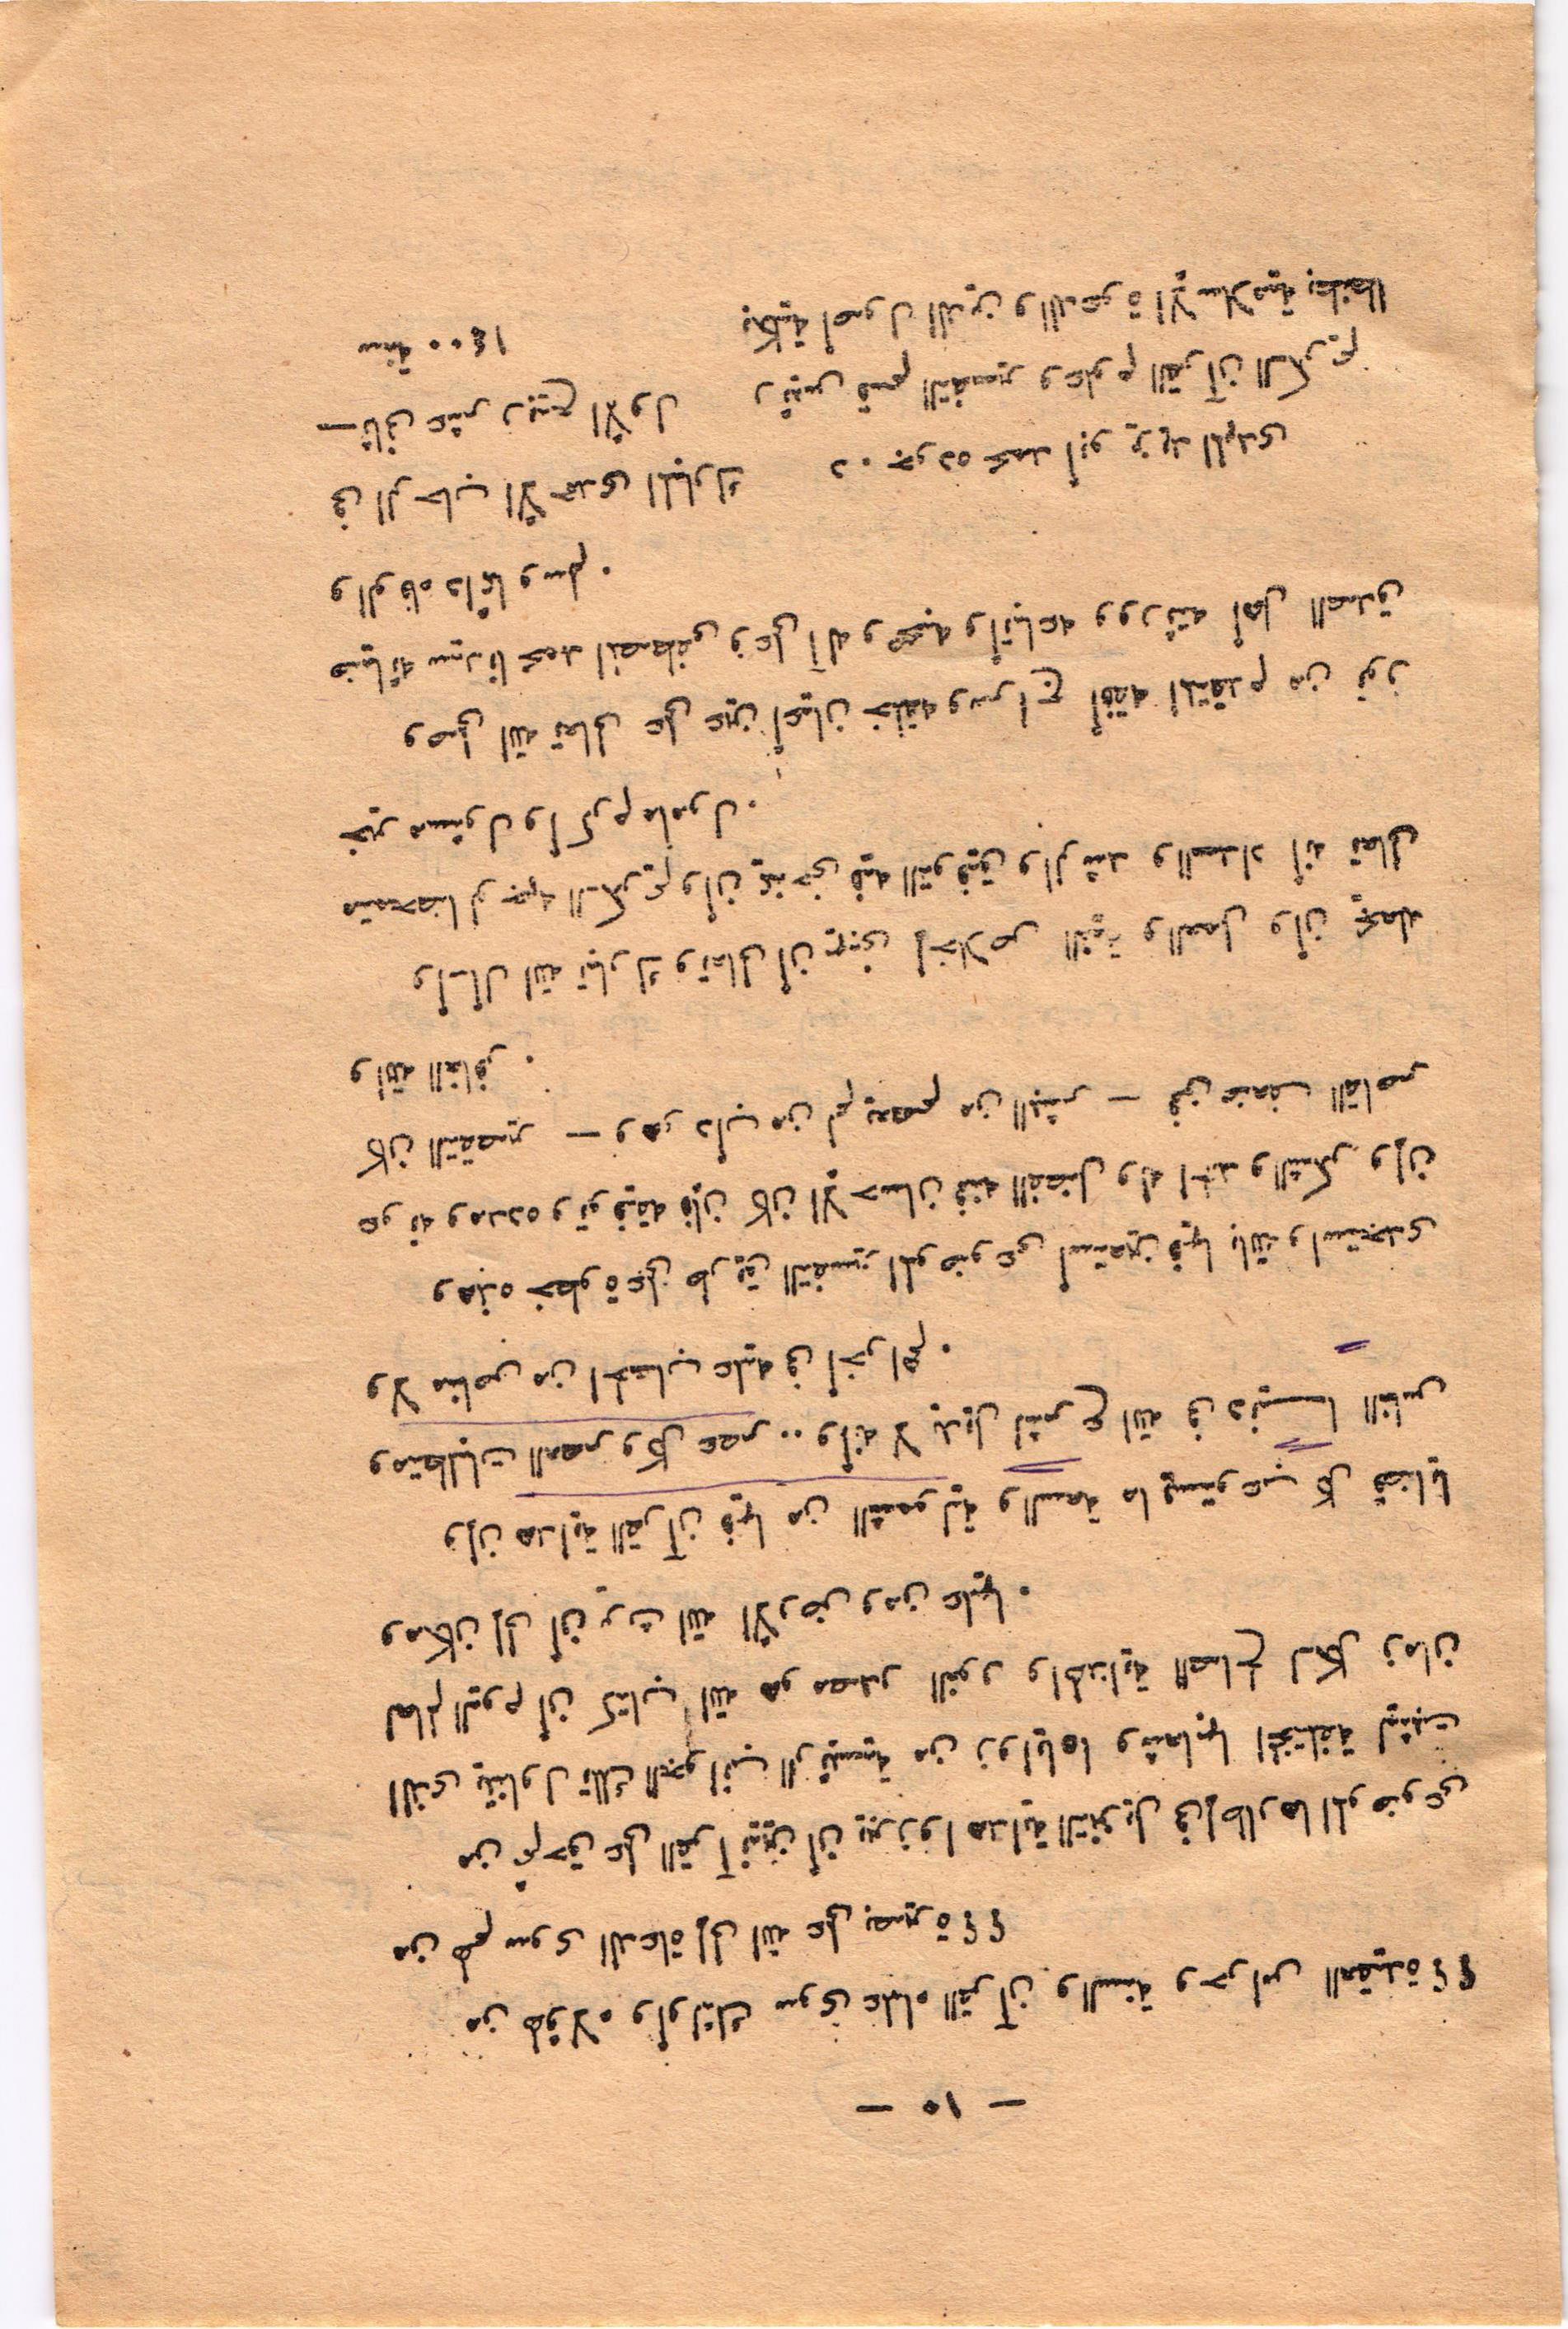 — ١٠ —
من هؤلاء وأولئك سوى علماء القرآن والسنة وحراس العقيدة ؟؟
من لهم سوى الدعاة إلى الله على بصيرة ؟؟
من ثم حق على القرآنيين أن يبرزوا هداية التنزيل فى إطارها الموضوعى
الذى يتناول تلك الجوانب الرئيسية من زواياها وشعابها المختلفة ليثبت
لعالم اليوم أن كتاب الله هو مصدر النور والهداية الصالح لكل زمان
ومكان إلى أن يرث الله الأرض ومن عليها .
وإن هداية القرآن فيها من الشمولية والسعة ما يستوعب كل قضايا
ومتطلبات العصر وكل عصر .. وأنه لا بديل لشرع الله فى دنيا الناس
ولا مناص من الحساب عليه فى أخراهم .
وهذه خطوة على طريق التفسير الموضوعى أستعين فيها بالله وأستجدى
عونه ومدده وتوفيقه فإن كان الإحسان فمنه الفضل وله الحمد والشكر وإن
كان التقصير — وهو دأب من لم يعصم من البشر — فمن ضعف القاصر
والله الغافر .
وأسأل الله تبارك وتعالى أن يجزى إخلاص النية والعمل وأن يجعله
متمحضا لوجهه الكريم وأن يمنحنى فيه التوفيق والرشد والسداد انه تعالى
خير مسئول وأكرم مأمول .
وصلى الله تعالى على عين أعيان خلقه وسراج أفقه المتقدم من نور
ضيائه سيدنا محمد المصطفى وعلى آله وصحبه وأتباعه وورثته أهل الصدق
والوفاء دائما وسلم .
فى الرحاب الأحمدى المبارك
ثانى عشر ربيع الأول
سنة ١٤٠٠
د . جوده محمد أبو يزيد المهدى
رئيس قسم التفسير وعلوم القرآن الكريم
بكلية أصول الدين والدعوة الإسلامية بطنطا